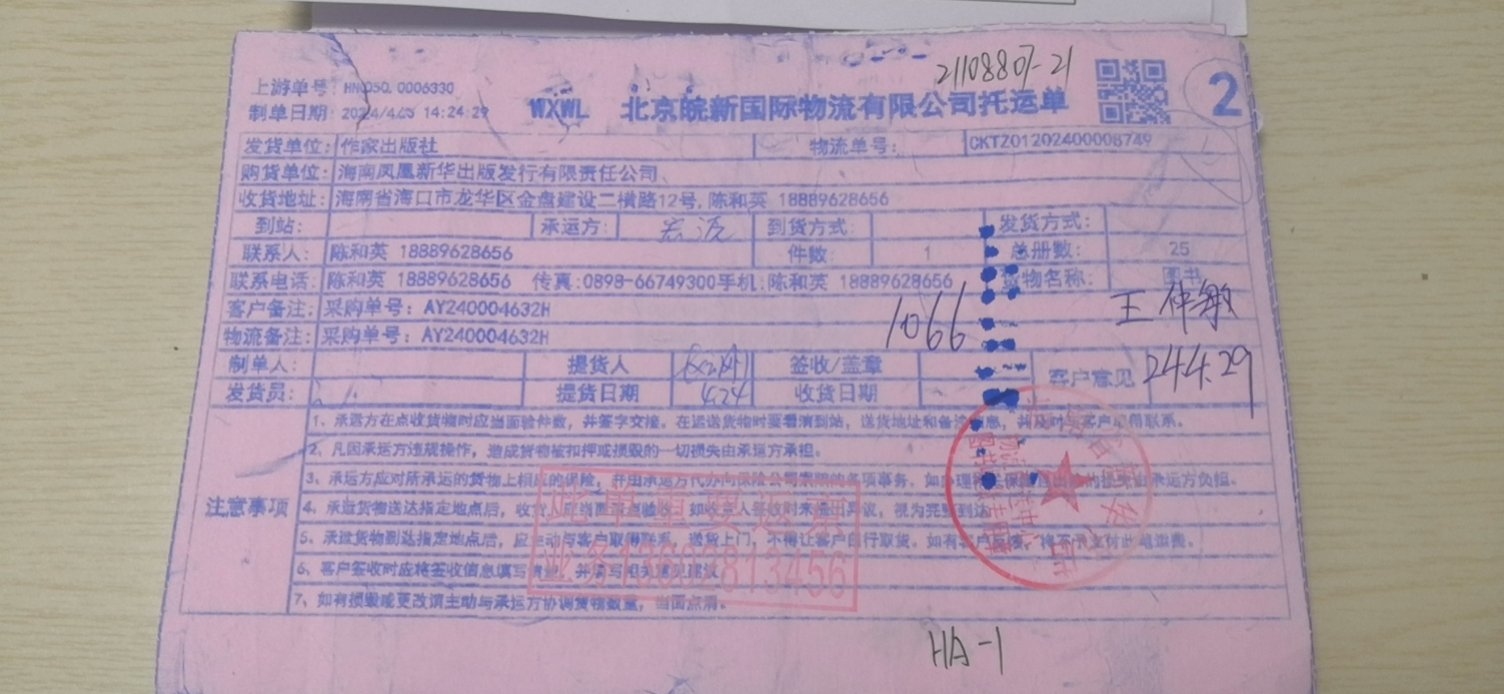 2110880-21
上游单号: HN050 0006330
制单日期: 2024/4/23 14:24:29
WXWL 北京皖新国际物流有限公司托运单 2
发货单位: 作家出版社 物流单号: CKTZ01202400008749
购货单位: 海南凤凰新华出版发行有限责任公司
收货地址: 海南省海口市龙华区金盘建设二横路12号, 陈和英 18889628656
到站: 承运方: 到货方式: 发货方式:
联系人: 陈和英 18889628656 件数: 1 总册数: 25
联系电话: 陈和英 18889628656 传真:0898-66749300手机:陈和英 18889628656 货物名称: 图书
客户备注: 采购单号: AY240004632H 1066 王仲敏
物流备注: 采购单号: AY240004632H
制单人: 提货人 签收/盖章 客户意见 24.4.29
发货员: 提货日期 4.24 收货日期
注意事项
1、承运方在点收货物时应当面验件数, 并签字交接。在运送货物时要看清到站, 送货地址和备注信息, 并及时与客户取得联系。
2、凡因承运方违规操作, 造成货物被扣押或损毁的一切损失由承运方承担。
3、承运方应对所承运的货物上相应的保险, 并由承运方代办向保险公司索赔的各项事务, 如办理
4、承运货物送达指定地点后, 收货人应当面清点验收, 如收货人签收时未提出异议, 视为完整到达
5、承运货物到达指定地点后, 应主动与客户取得联系, 送货上门, 不得让客户自行取货。如有客户反馈, 将不予支付
6、客户签收时应将签收信息填写清楚, 并填写相关意见建议
7、如有损毁或更改请主动与承运方协调货物数量, 当面点清。
此单重要运票
HA-1